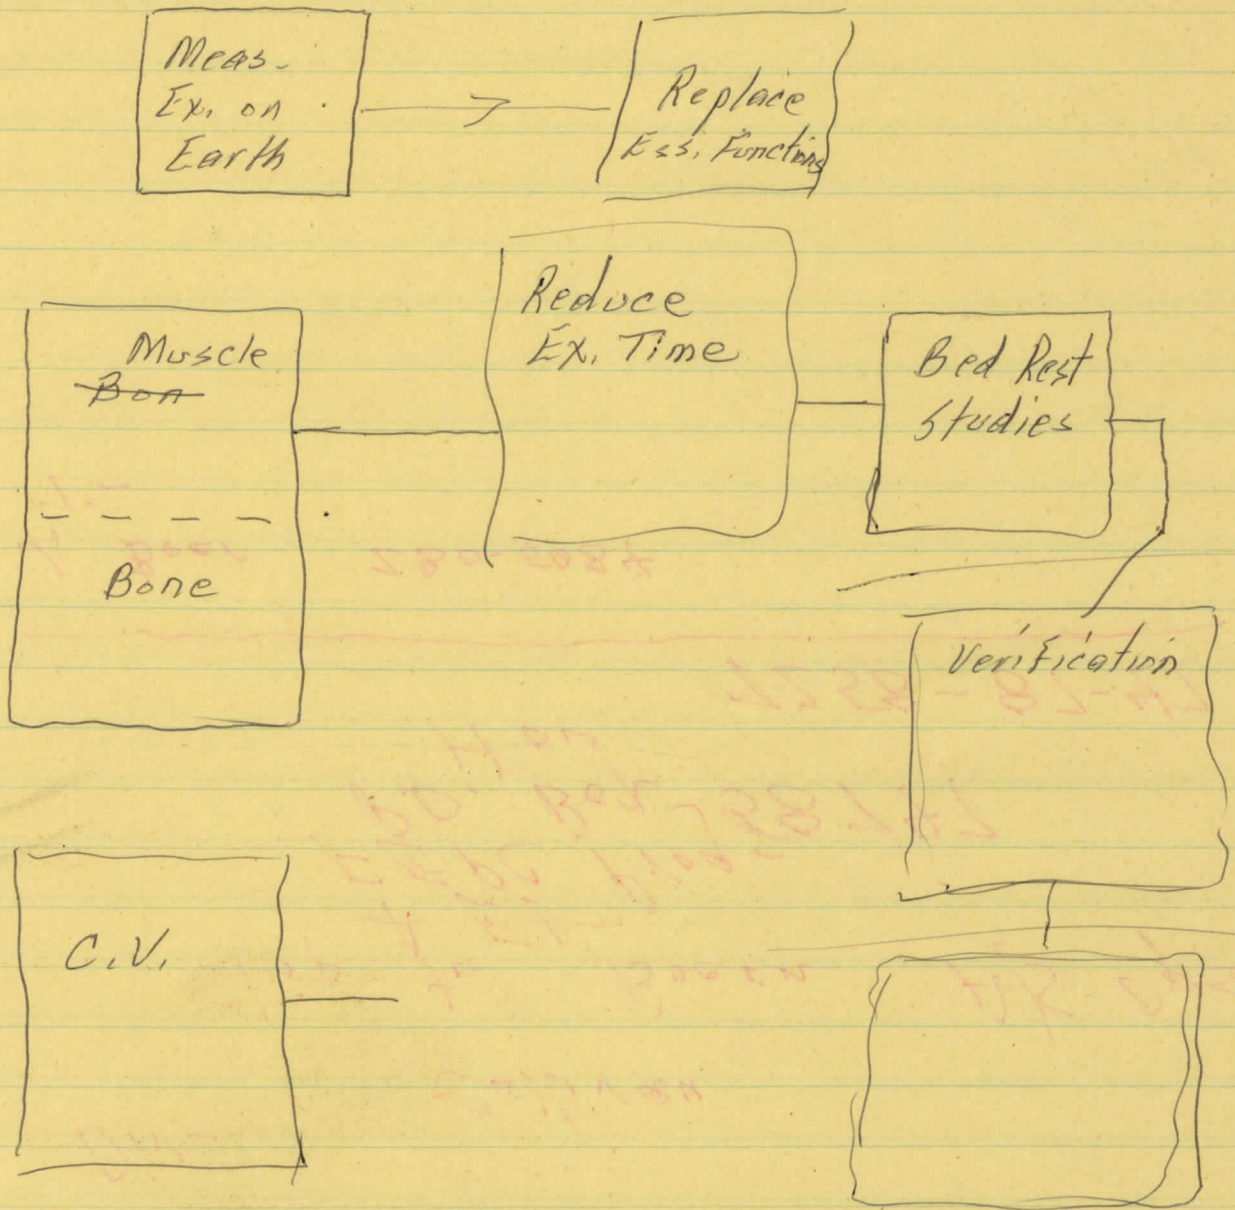 Meas.
Ex. on
Earth
Replace
Ess. Functions
Muscle
Bon
Bone
Reduce
Ex. Time
Bed Rest
Studies
Verification
C.V.